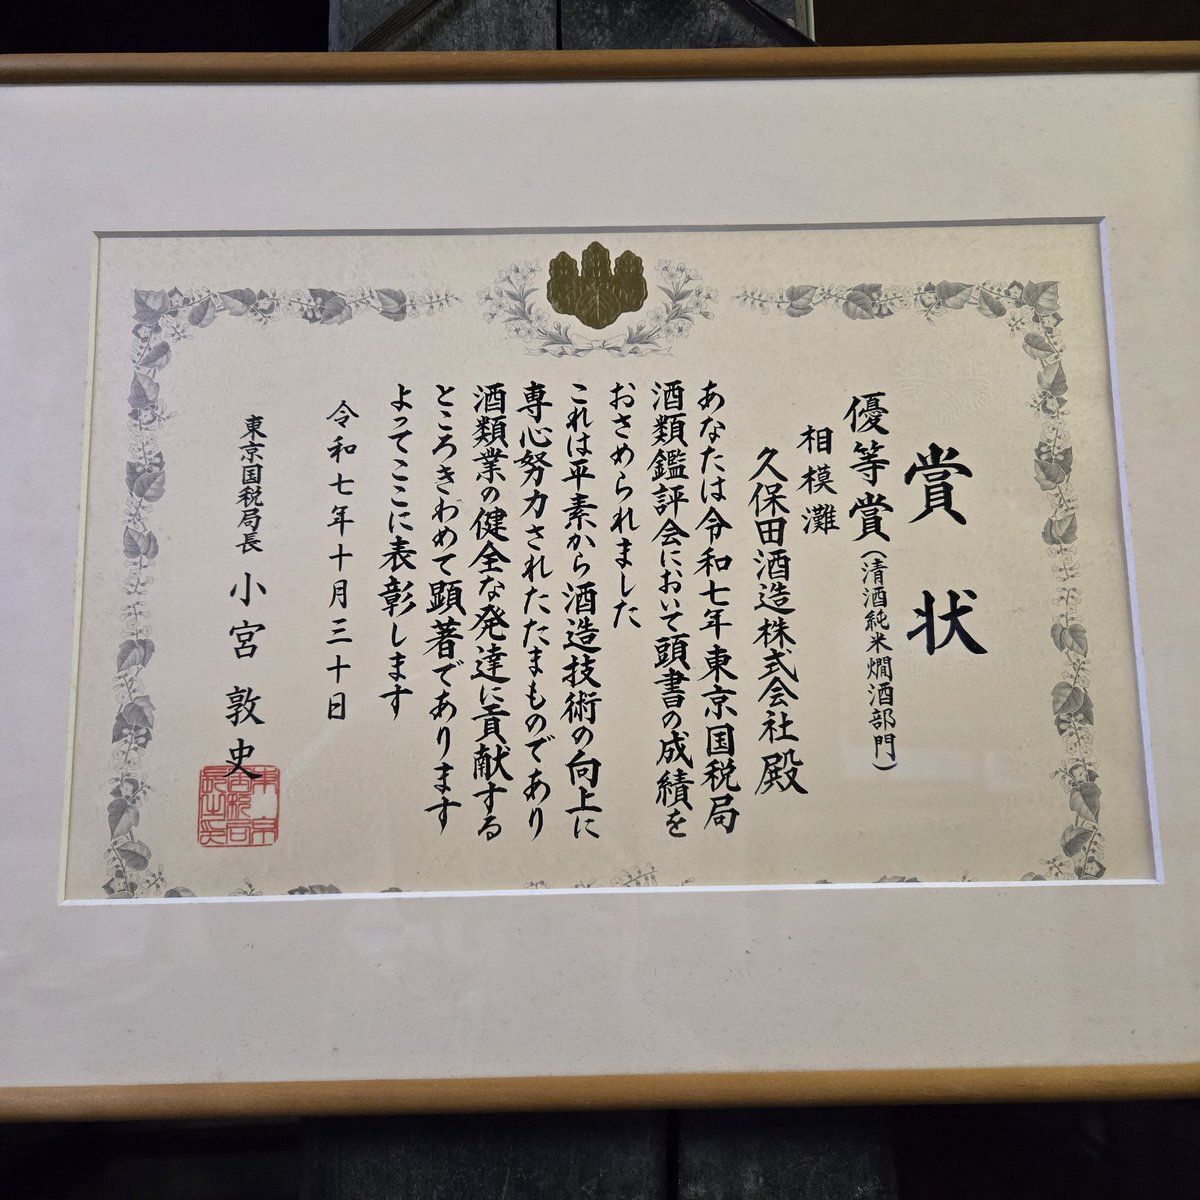 賞状
優等賞(清酒純米燗酒部門)
相模灘
久保田酒造株式会社殿
あなたは令和七年東京国税局
酒類鑑評会において頭書の成績を
おさめられました
これは平素から酒造技術の向上に
専心努力されたたまものであり
酒類業の健全な発達に貢献する
ところきわめて顕著であります
よってここに表彰します
令和七年十月三十日
東京国税局長 小宮敦史